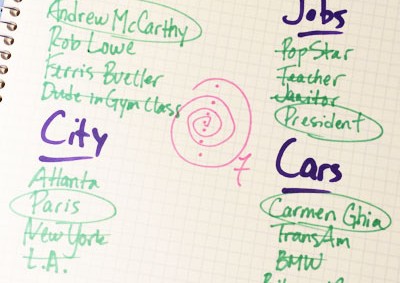 Andrew McCarthy
Rob Lowe
Ferris Bueller
Dude in Gym Class
City
Atlanta
Paris
New York
L.A.
7
Jobs
Pop Star
Teacher
Janitor
President
Cars
Carmen Ghia
Trans Am
BMW